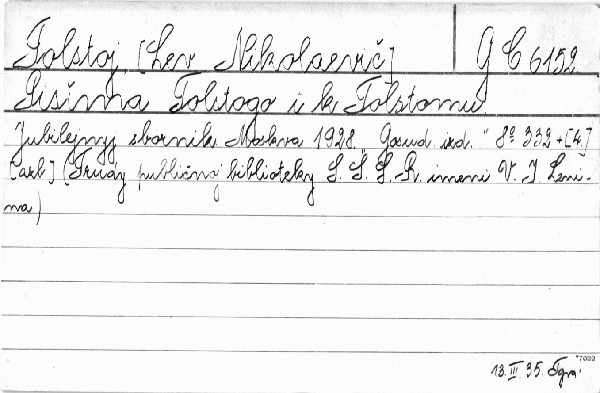 Tolstoj [Lev Nikolaevič] G C 6152
Pisíma Tolstogo i k Tolstomu.
Jubilejnyj sbornik. Moskva 1928. "Gosud. izd." 8º 332+[4.]
[arb] (Trudy publičnoj biblioteky S. S. S. R. imeni V. I. Leni-
na)
13. III 35.
*7022